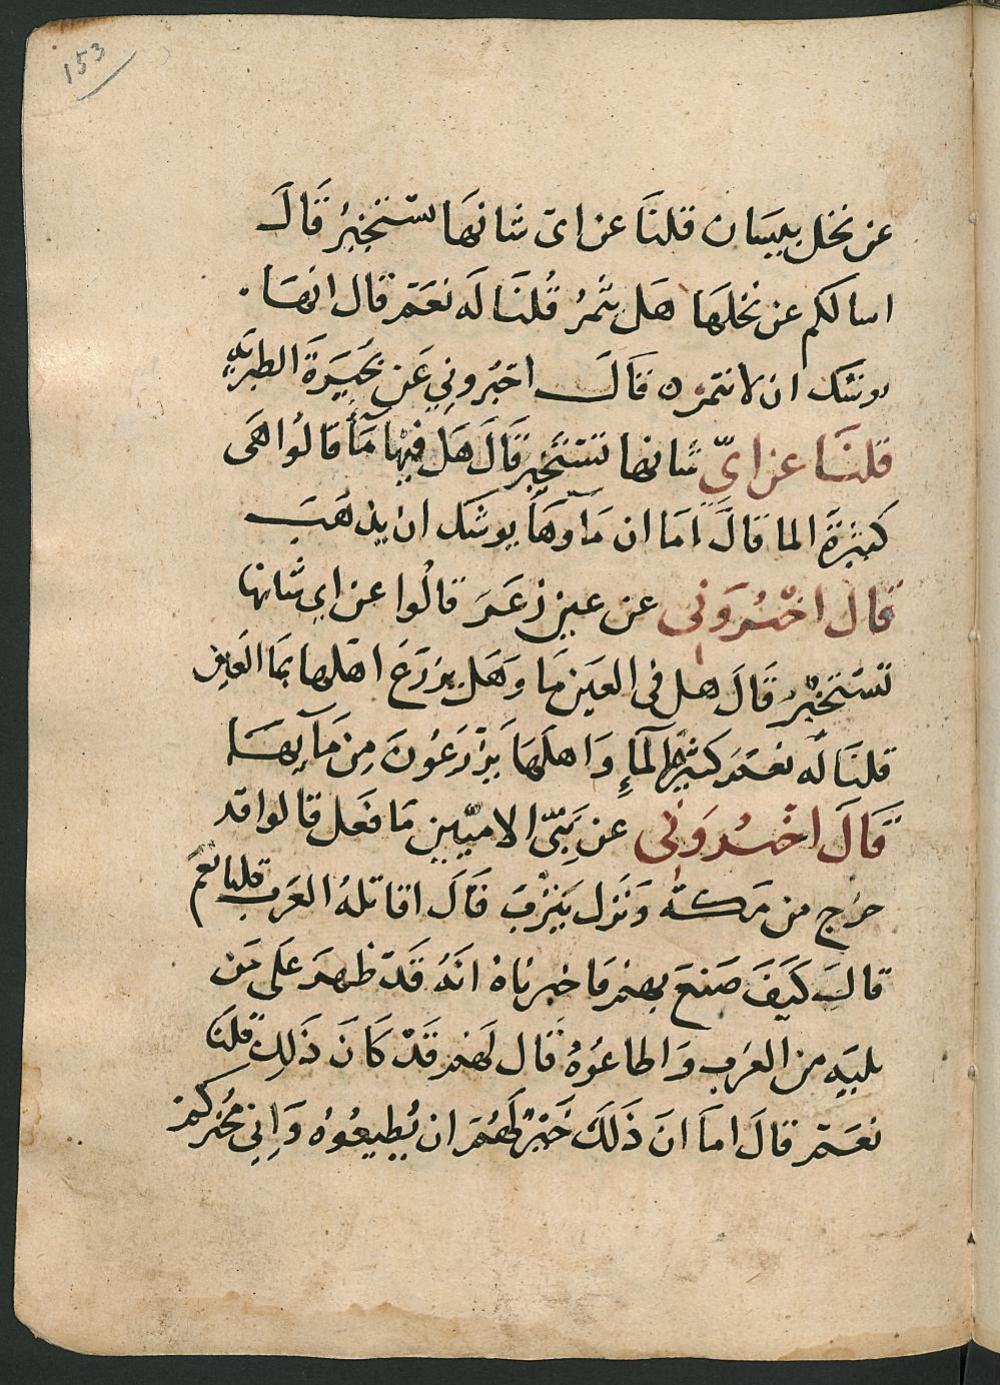 153
عن نخل بيسان قلنا عن اى شانها تستخبرُ قَالَ
اسالكم عن نخلهَا هَل يثمرُ قُلنَا لَه نعَم قال انهَا
يوشك ان لا تثمره قَالَ اخبُرونِي عَن بُحَيرَةَ الطبريّهِ
قلنَا عن ايّ شانها تستَخبر قَالَ هَل فيها مَآ قَالوُا هَى
كثيَرةَ الما قالَ امَا ان مَآوهَا يوشك ان يذهَبَ
قال اخبُروَنى عن عين زعَرَ قالُوا عن اي شانها
تستخبر قَالَ هل فى العَين مَا وَهَل يزرَعَ اهلها بمَا العَين
قلنَا لَه نعَمَ كثيرة المآءِ وَاهلَهَا يَزْرَعُونَ مِن مَآيهَا
قَالَ اخبرُوَنى عن نَبىّ الاميّين مَا فعَل قالوا قد
خرَج من مَكة وَنَزل يَثْربَ قَالَ اقاتلهُ العَرب قلنا نعَم
قالَ كَيَفَ صَنَع بهمْ فاخبرناهُ انهُ قَدْ ظهرَ عَلَى مَن
يليَهِ من العَرَب وَاطاعُوهُ قَال لَهَم قَدْ كَانَ ذَلِكَ قلنَا
نعَمَ قالَ امَا انَ ذَلكَ خَيْرٌ لَهُمَ ان يُطيعُوهُ وَاِني مُخبركمْ